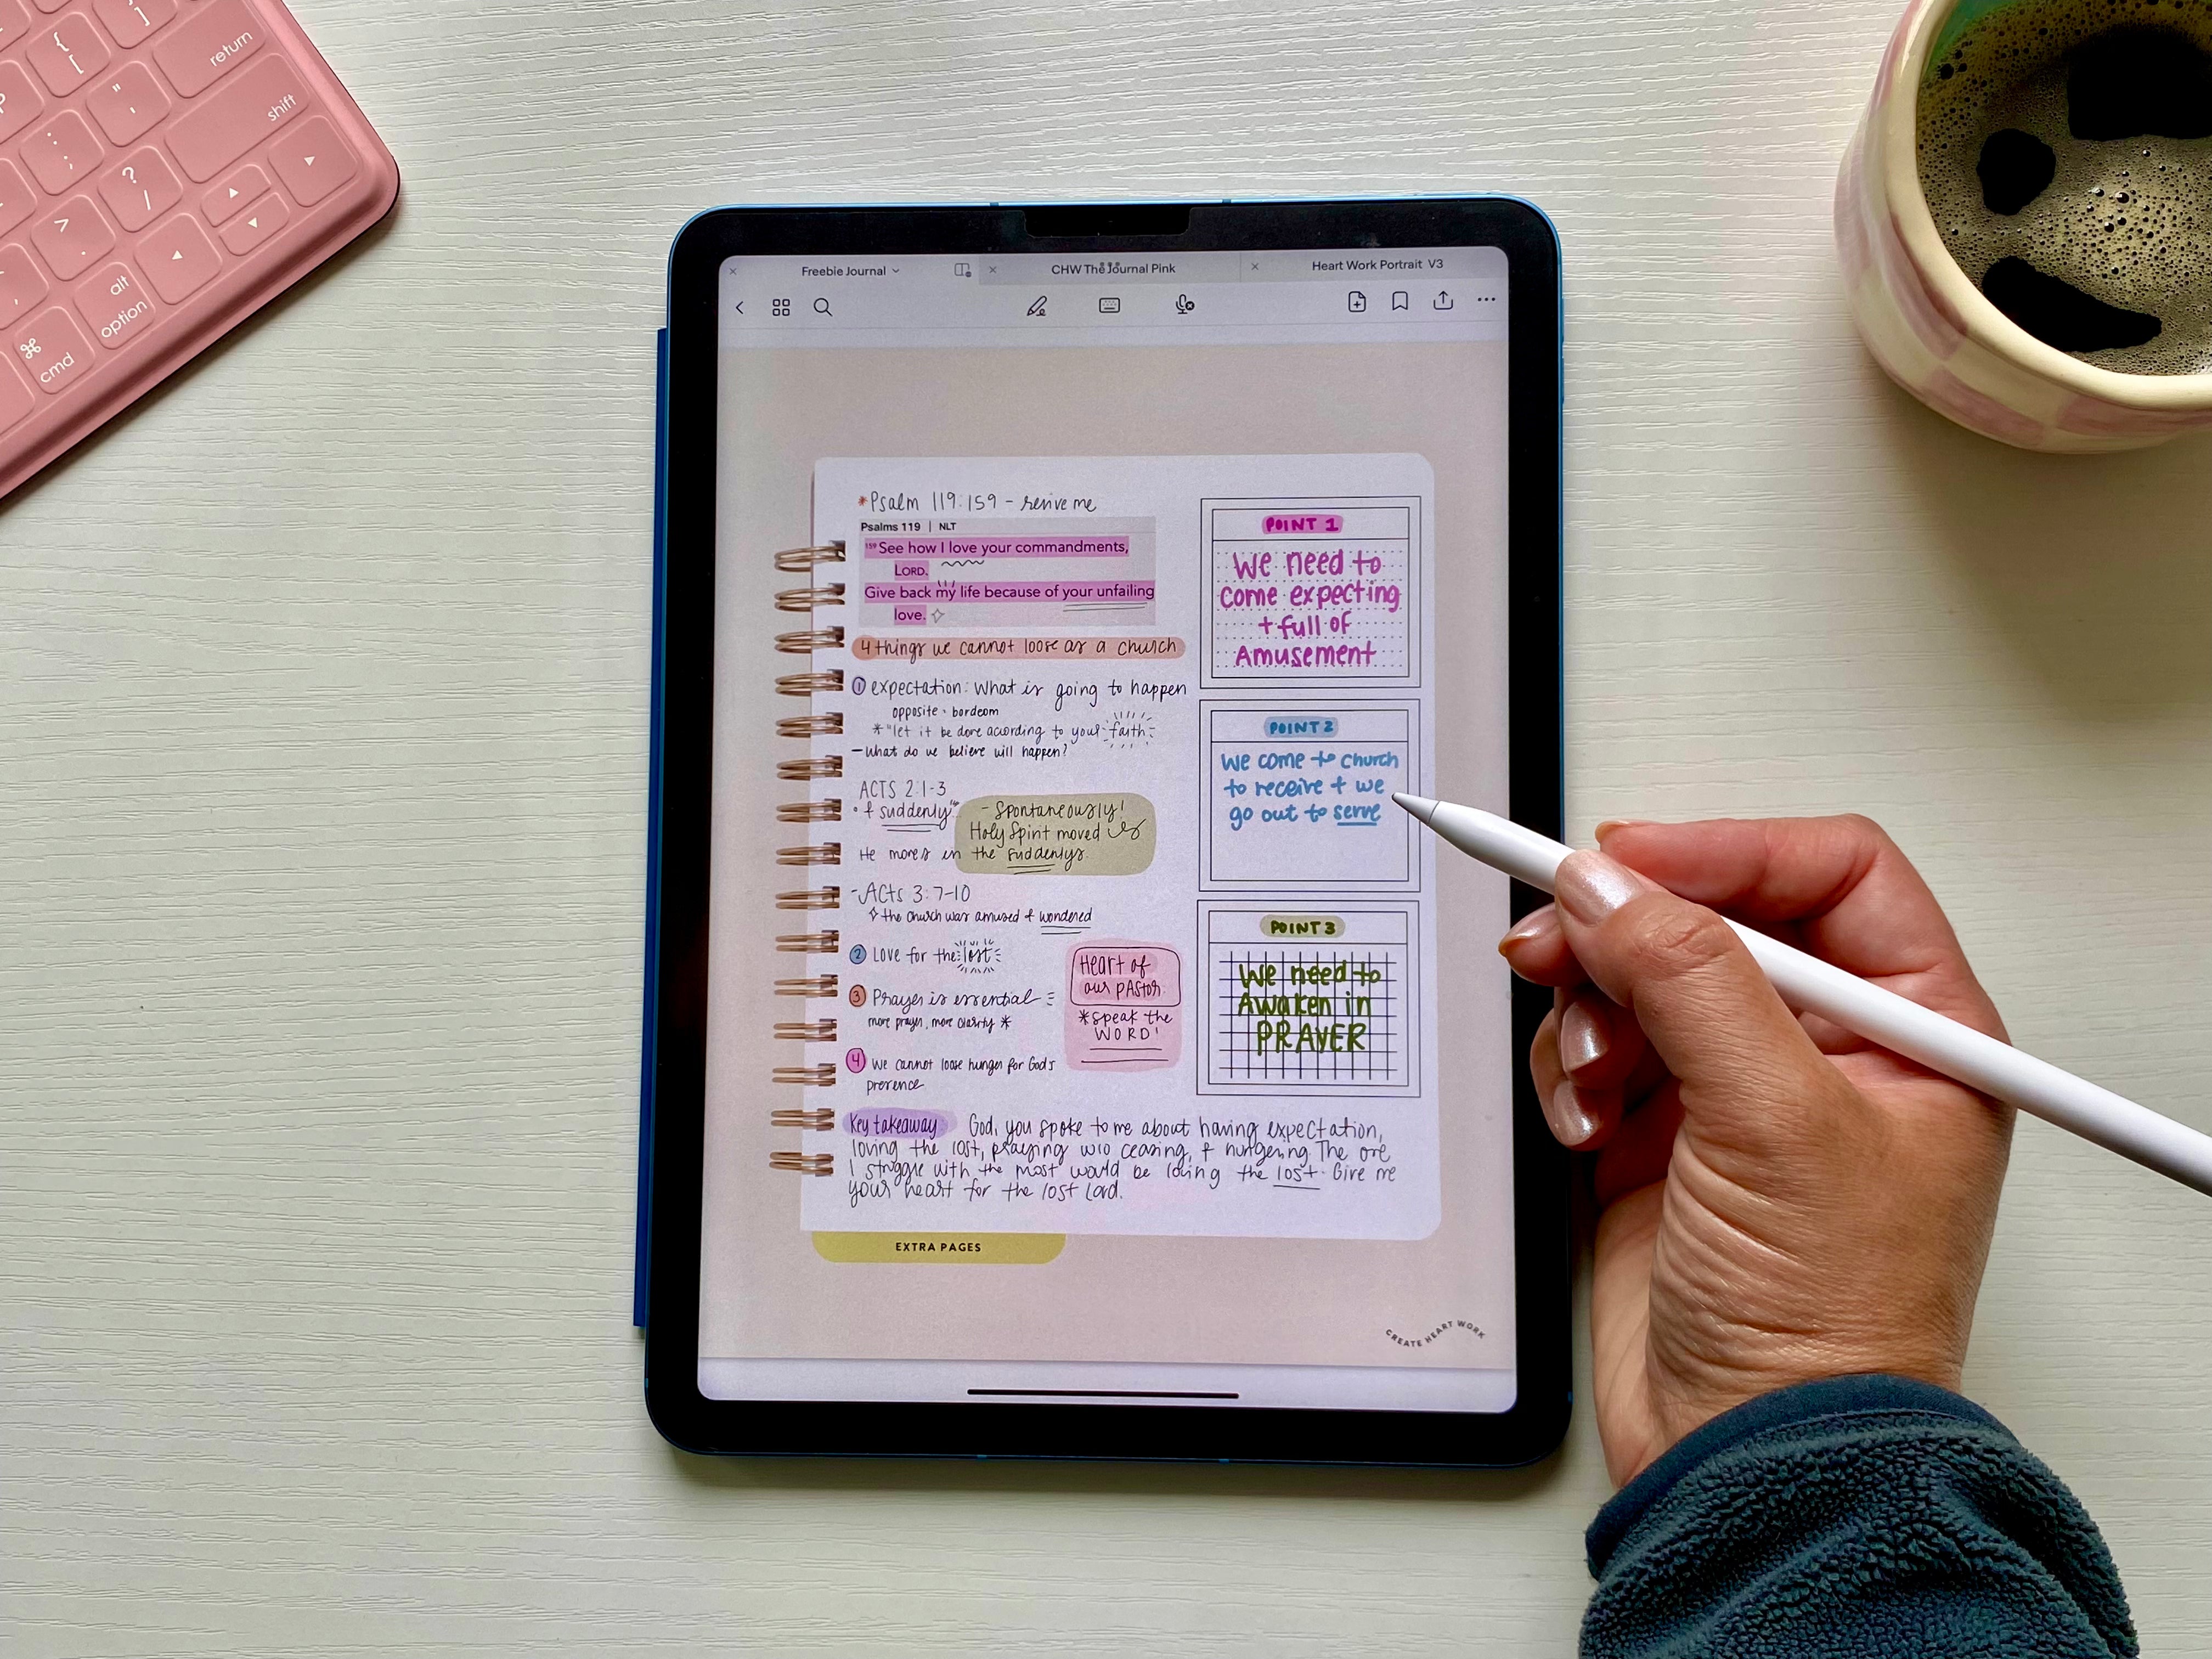 return
shift
alt
option
cmd
Freebie Journal
CHW The Journal Pink
Heart Work Portrait V3
*Psalm 119:159 - revive me
Psalms 119 | NLT
159 See how I love your commandments,
LORD.
Give back my life because of your unfailing
love.
4 things we cannot loose as a church
① expectation: What is going to happen
opposite · bordeom
* "let it be done acording to your faith
- What do we believe will happen?
ACTS 2:1-3
• & suddenly"
- Spontaneously!
Holy Spirit moved
He moves in the suddenlys
- Acts 3:7-10
the church was amused & wondered
② Love for the lost
③ Prayer is essential
more prayer, more clarity *
Heart of
our pastor
*speak the
WORD!
④ We cannot loose hunger for God's
presence
Key takeaway God, you spoke to me about having expectation,
loving the lost, praying w/o ceasing, & hungering The one
I struggle with the most would be loving the lost. Give me
your heart for the lost Lord.
POINT 1
We need to
come expecting
+ full of
Amusement
POINT 2
We come to church
to receive + we
go out to serve
POINT 3
We need to
Awaken in
PRAYER
EXTRA PAGES
CREATE HEART WORK